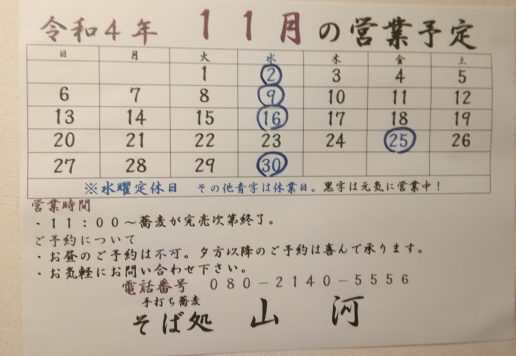 令和4年 11月の営業予定
日 月 火 水 木 金 土
1 2 3 4 5
6 7 8 9 10 11 12
13 14 15 16 17 18 19
20 21 22 23 24 25 26
27 28 29 30
※水曜定休日 その他青字は休業日。黒字は元気に営業中!
営業時間
・11:00~蕎麦が完売次第終了。
ご予約について
・お昼のご予約は不可。夕方以降のご予約は喜んで承ります。
・お気軽にお問い合わせ下さい。
電話番号 080-2140-5556
手打ち蕎麦
そば処 山河